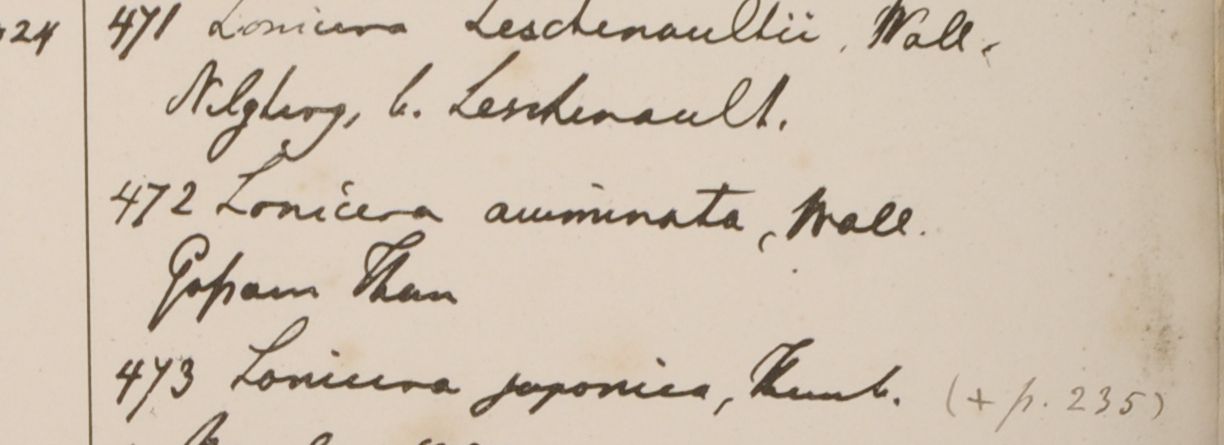 24 471 Lonicera Leschenaultii, Wall.
Nilghery, b. Leschenault.
472 Lonicera acuminata, Wall.
Gossam Than
473 Lonicera japonica, Thunb. (+ p. 235)